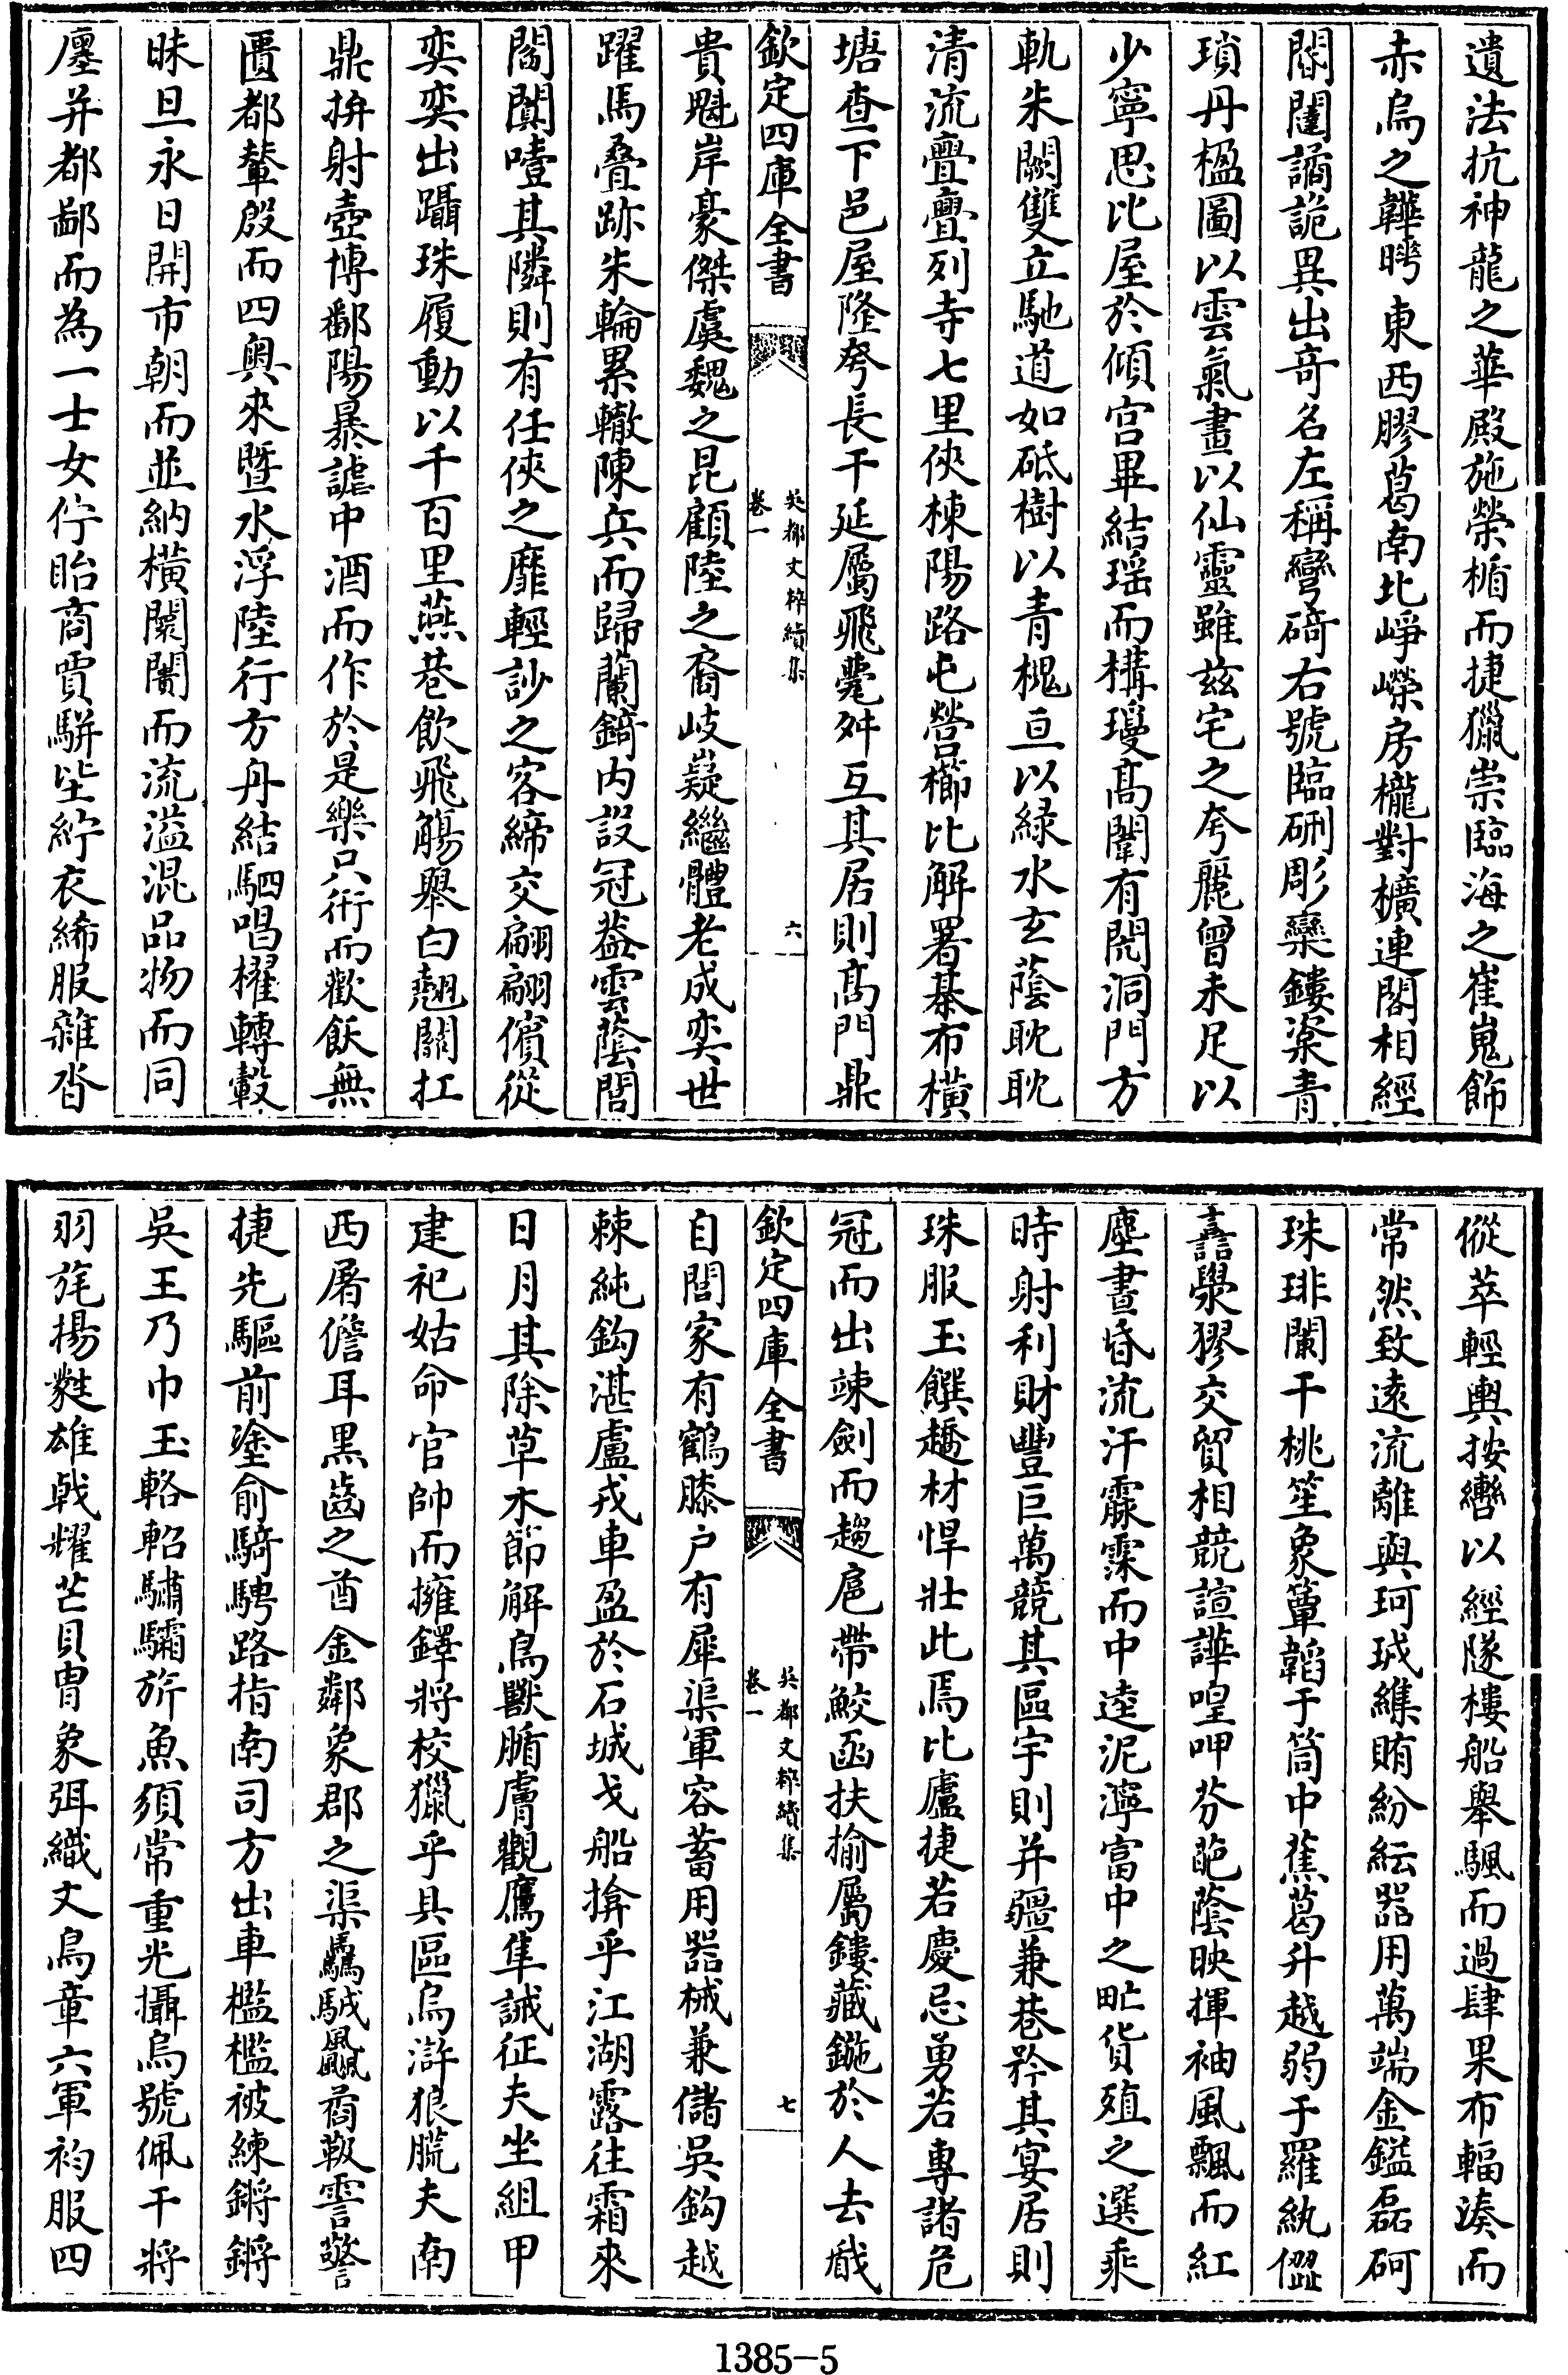 遺法抗神龍之華殿施榮楯而捷獵崇臨海之崔嵬飾
赤烏之韡曄東西膠葛南北崢嶸房櫳對櫎連閣相經
閽闥譎詭異出竒名左稱彎碕右號臨硎彫欒鏤楶青
瑣丹楹圖以雲氣畫以仙靈雖兹宅之夸麗曾未足以
少寧思比屋於傾宫畢結瑶而構瓊髙闈有閌洞門方
軌朱闕雙立馳道如砥樹以青槐亘以緑水玄蔭耽耽
清流亹亹列寺七里俠棟陽路屯營櫛比解署棊布横
塘查下邑屋隆夸長干延屬飛甍舛互其居則髙門鼎
欽定四庫全書
吳都文粹續集
卷一
六
貴魁岸豪傑虞魏之昆顧陸之裔岐嶷繼體老成奕世
躍馬疊跡朱輪累轍陳兵而歸蘭錡内設冠葢雲蔭閭
閻闐噎其隣則有任俠之靡輕訬之客締交翩翩儐從
奕奕出躡珠履動以千百里燕巷飲飛觴舉白翹關扛
鼎拚射壺博鄱陽暴謔中酒而作於是樂只衎而歡飫無
匱都輦殷而四奥來曁水浮陸行方舟結駟唱櫂轉轂
昧旦永日開市朝而並納横闤闠而流溢混品物而同
廛并都鄙而為一士女佇眙商賈駢坒紵衣絺服雜沓
傱萃輕輿按轡以經隧樓船舉颿而過肆果布輻湊而
常然致逺流離與珂珬䌖賄紛紜器用萬端金鎰磊砢
珠琲闌干桃笙象簟韜于筒中蕉葛升越弱于羅紈㒊
譶澩㺒交貿相競諠譁喤呷芬葩蔭映揮袖風飄而紅
塵晝昏流汗霢霂而中逵泥濘富中之甿貨殖之選乘
時射利財豐巨萬競其區宇則并疆兼巷矜其宴居則
珠服玉饌趫材悍壯此焉比廬捷若慶忌勇若専諸危
冠而出竦劍而趨扈帶鮫函扶揄屬鏤藏鍦於人去戫
欽定四庫全書
吳都文粹續集
卷一
七
自閭家有鶴膝户有犀渠軍容蓄用器械兼儲吳鈎越
棘純鈎湛盧戎車盈於石城戈船揜乎江湖露往霜來
日月其除草木節解鳥獸腯膚觀鷹隼誡征夫坐組甲
建祀姑命官帥而擁鐸將校獵乎具區烏滸狼䐠夫南
西屠儋耳黒齒之酋金鄰象郡之渠驫駥飍矞靸霅警
捷先驅前塗俞騎騁路指南司方出車檻檻被練鏘鏘
吳王乃巾玉輅軺驌驦旂魚須常重光攝烏號佩干將
羽旄揚蕤雄戟耀芒貝胄象弭織文鳥章六軍袀服四
1385-5